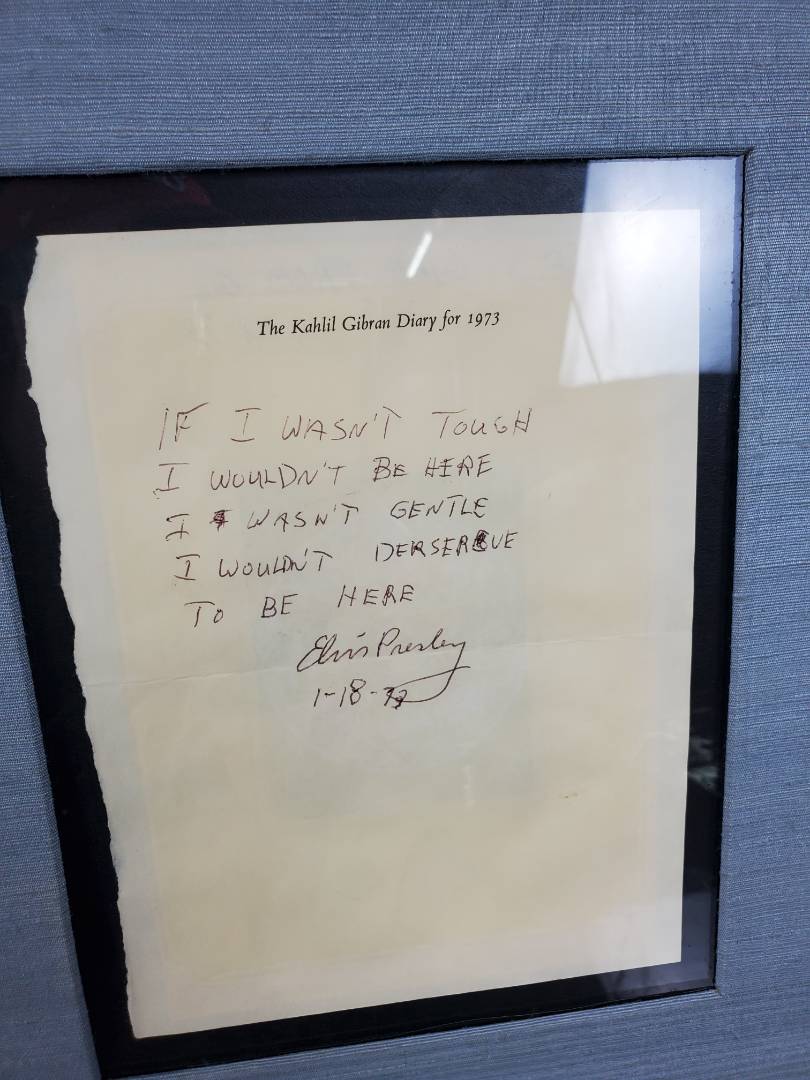 The Kahlil Gibran Diary for 1973
IF I WASN'T TOUGH
I WOULDN'T BE HERE
I WASN'T GENTLE
I WOULDN'T DERSERVE
TO BE HERE
Elvis Presley
1-18-73